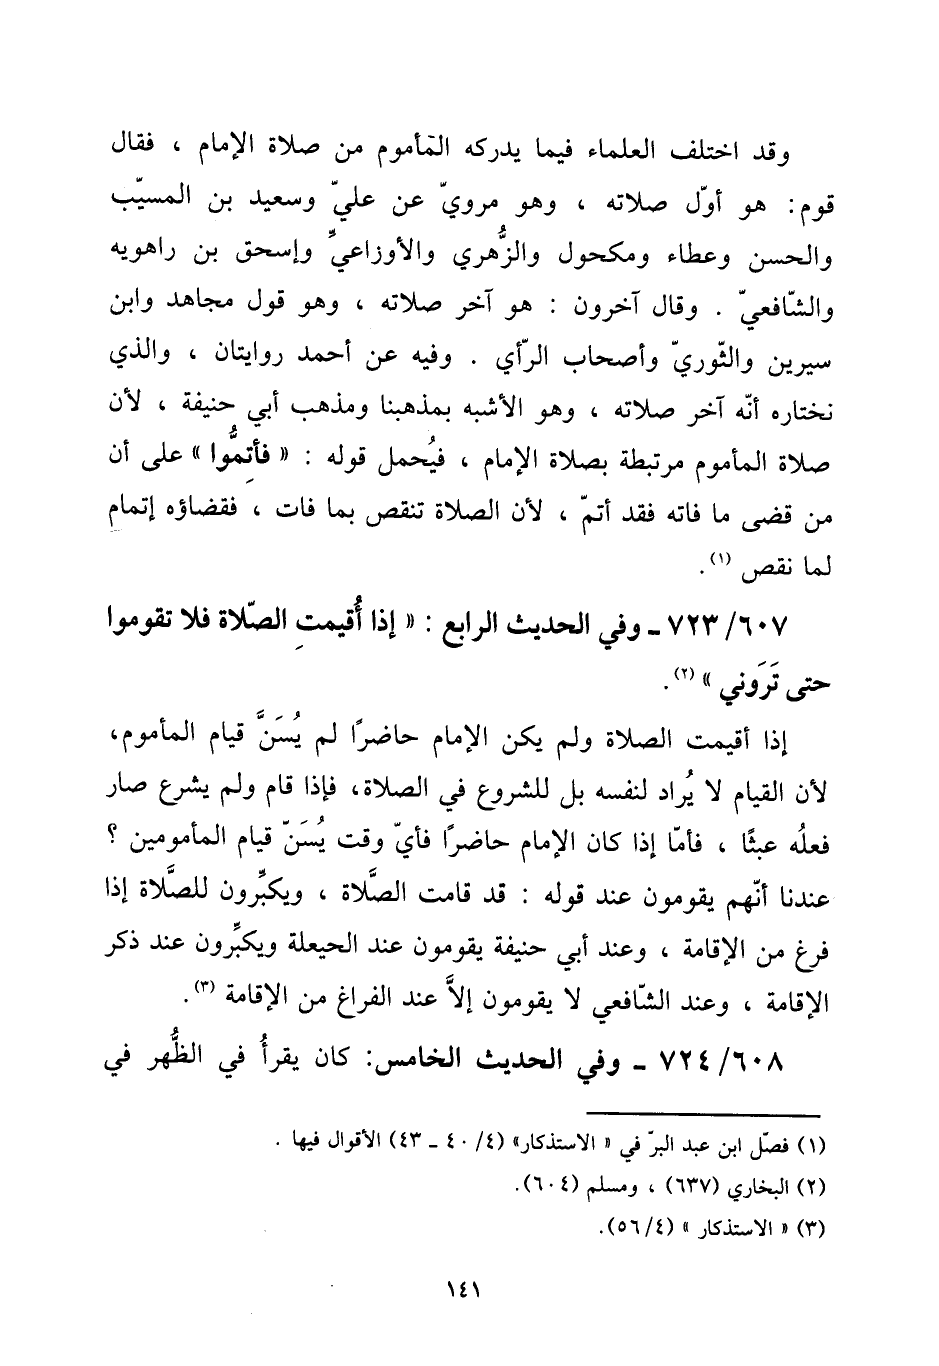 وقد اختلف العلماء فيما يدركه المأموم من صلاة الإمام ، فقال
قوم: هو أوّل صلاته ، وهو مرويّ عن عليّ وسعيد بن المسيّب
والحسن وعطاء ومكحول والزُّهري والأوزاعيِّ وإسحق بن راهويه
والشّافعيّ . وقال آخرون : هو آخر صلاته ، وهو قول مجاهد وابن
سيرين والثّوريّ وأصحاب الرّأي . وفيه عن أحمد روايتان ، والذي
نختاره أنّه آخر صلاته ، وهو الأشبه بمذهبنا ومذهب أبي حنيفة ، لأن
صلاة المأموم مرتبطة بصلاة الإمام ، فيُحمل قوله : « فأتمُّوا » على أن
من قضى ما فاته فقد أتمّ ، لأن الصلاة تنقص بما فات ، فقضاؤه إتمام
لما نقص (١).
٧٢٣/٦٠٧ ـ وفي الحديث الرابع : « إذا أُقيمت الصّلاة فلا تقوموا
حتى تَرَوني » (٢).
إذا أقيمت الصلاة ولم يكن الإمام حاضرًا لم يُسَنَّ قيام المأموم،
لأن القيام لا يُراد لنفسه بل للشروع في الصلاة، فإذا قام ولم يشرع صار
فعلُه عبثًا ، فأمّا إذا كان الإمام حاضرًا فأيّ وقت يُسَنّ قيام المأمومين ؟
عندنا أنّهم يقومون عند قوله : قد قامت الصَّلاة ، ويكبِّرون للصَّلاة إذا
فرغ من الإقامة ، وعند أبي حنيفة يقومون عند الحيعلة ويكبِّرون عند ذكر
الإقامة ، وعند الشّافعي لا يقومون إلاَّ عند الفراغ من الإقامة (٣).
٧٢٤/٦٠٨ ـ وفي الحديث الخامس: كان يقرأُ في الظُّهر في
(١) فصّل ابن عبد البرّ في « الاستذكار» (٤/ ٤٠ ـ ٤٣) الأقوال فيها .
(٢) البخاري (٦٣٧) ، ومسلم (٦٠٤).
(٣) « الاستذكار » (٥٦/٤).
١٤١